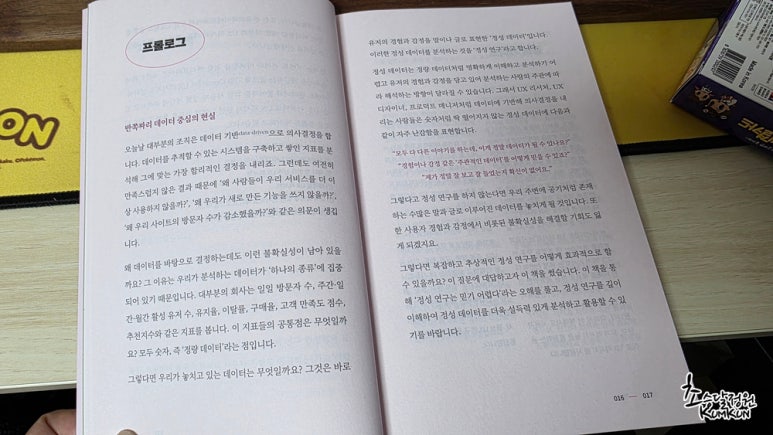 프롤로그
반쪽짜리 데이터 중심의 현실
오늘날 대부분의 조직은 데이터 기반data-driven으로 의사결정을 합
니다. 데이터를 추적할 수 있는 시스템을 구축하고 쌓인 지표를 분
석해 그에 맞는 가장 합리적인 결정을 내리죠. 그런데도 여전히
만족스럽지 않은 결과 때문에 '왜 사람들이 우리 서비스를 더 이
상 사용하지 않을까?', '왜 우리가 새로 만든 기능을 쓰지 않을까?',
'왜 우리 사이트의 방문자 수가 감소했을까?'와 같은 의문이 생깁
니다.
왜 데이터를 바탕으로 결정하는데도 이런 불확실성이 남아 있을
까요? 그 이유는 우리가 분석하는 데이터가 '하나의 종류'에 집중
되어 있기 때문입니다. 대부분의 회사는 일일 방문자 수, 주간·월
간 활성 유저 수, 유지율, 이탈률, 구매율, 고객 만족도 점수,
추천지수와 같은 지표를 봅니다. 이 지표들의 공통점은 무엇일까
요? 모두 숫자, 즉 '정량 데이터'라는 점입니다.
그렇다면 우리가 놓치고 있는 데이터는 무엇일까요? 그것은 바로
유저의 경험과 감정을 말이나 글로 표현한 '정성 데이터'입니다.
이러한 정성 데이터를 분석하는 것을 '정성 연구'라고 합니다.
정성 데이터는 정량 데이터처럼 명확하게 이해하고 분석하기 어
렵고 유저의 경험과 감정을 담고 있어 분석하는 사람의 주관에 따
라 해석하는 방향이 달라질 수 있습니다. 그래서 UX 리서처, UX
디자이너, 프로덕트 매니저처럼 데이터에 기반해 의사결정을 내
리는 사람들은 숫자처럼 딱 떨어지지 않는 정성 데이터에 다음과
같이 자주 난감함을 표현합니다.
"모두 다 다른 이야기를 하는데, 이게 정말 데이터가 될 수 있나요?"
"경험이나 감정 같은 '주관적인 데이터'를 어떻게 믿을 수 있죠?"
"제가 정말 잘 보고 잘 들었는지 확신이 없어요."
그렇다고 정성 연구를 하지 않는다면 우리 주변에 공기처럼 존재
하는 수많은 말과 글로 이루어진 데이터를 놓치게 될 것입니다. 또
한 사용자 경험과 감정에서 비롯된 불확실성을 해결할 기회도 잃
게 되겠지요.
그렇다면 복잡하고 추상적인 정성 연구를 어떻게 효과적으로 할
수 있을까요? 이 질문에 대답하고자 이 책을 썼습니다. 이 책을 통
해 '정성 연구는 믿기 어렵다'라는 오해를 풀고, 정성 연구를 깊이
이해하여 정성 데이터를 더욱 설득력 있게 분석하고 활용할 수 있
기를 바랍니다.
016 — 017
Made in Korea
초수달정원
KUMKUN